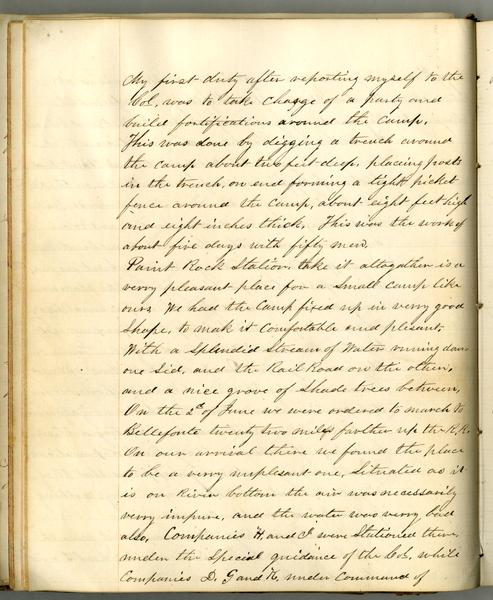 My first duty after reporting myself to the
Col, was to take charge of a party and
build fortifications around the camp.
This was done by digging a trench around
the camp about two feet deep, placing posts
in the trench, on end forming a tight picket
fence around the camp, about eight feet high
and eight inches thick. This was the work of
about five days with fifty men.
Paint Rock Station, take it altogether is a
verry pleasant place for a small camp like
ours. We had the Camp fixed up in verry good
shape, to mak it comfortable and plisent,
With a splendid stream of Water runing down
one sid, and the Rail Road on the other,
and a nice grove of Shade trees between,
On the 2d of June we were ordered to march to
Bellefonte twenty two miles farther up the R.R.
On our arrival there we found the place
to be a verry unplesant one, Situated as it
is on River bottom the air was necessarily
verry impure, and the water was verry bad
also, Companies H. and I were Stationed there,
under the Special guidance of the Col, while
Companies D, G and K, under command of